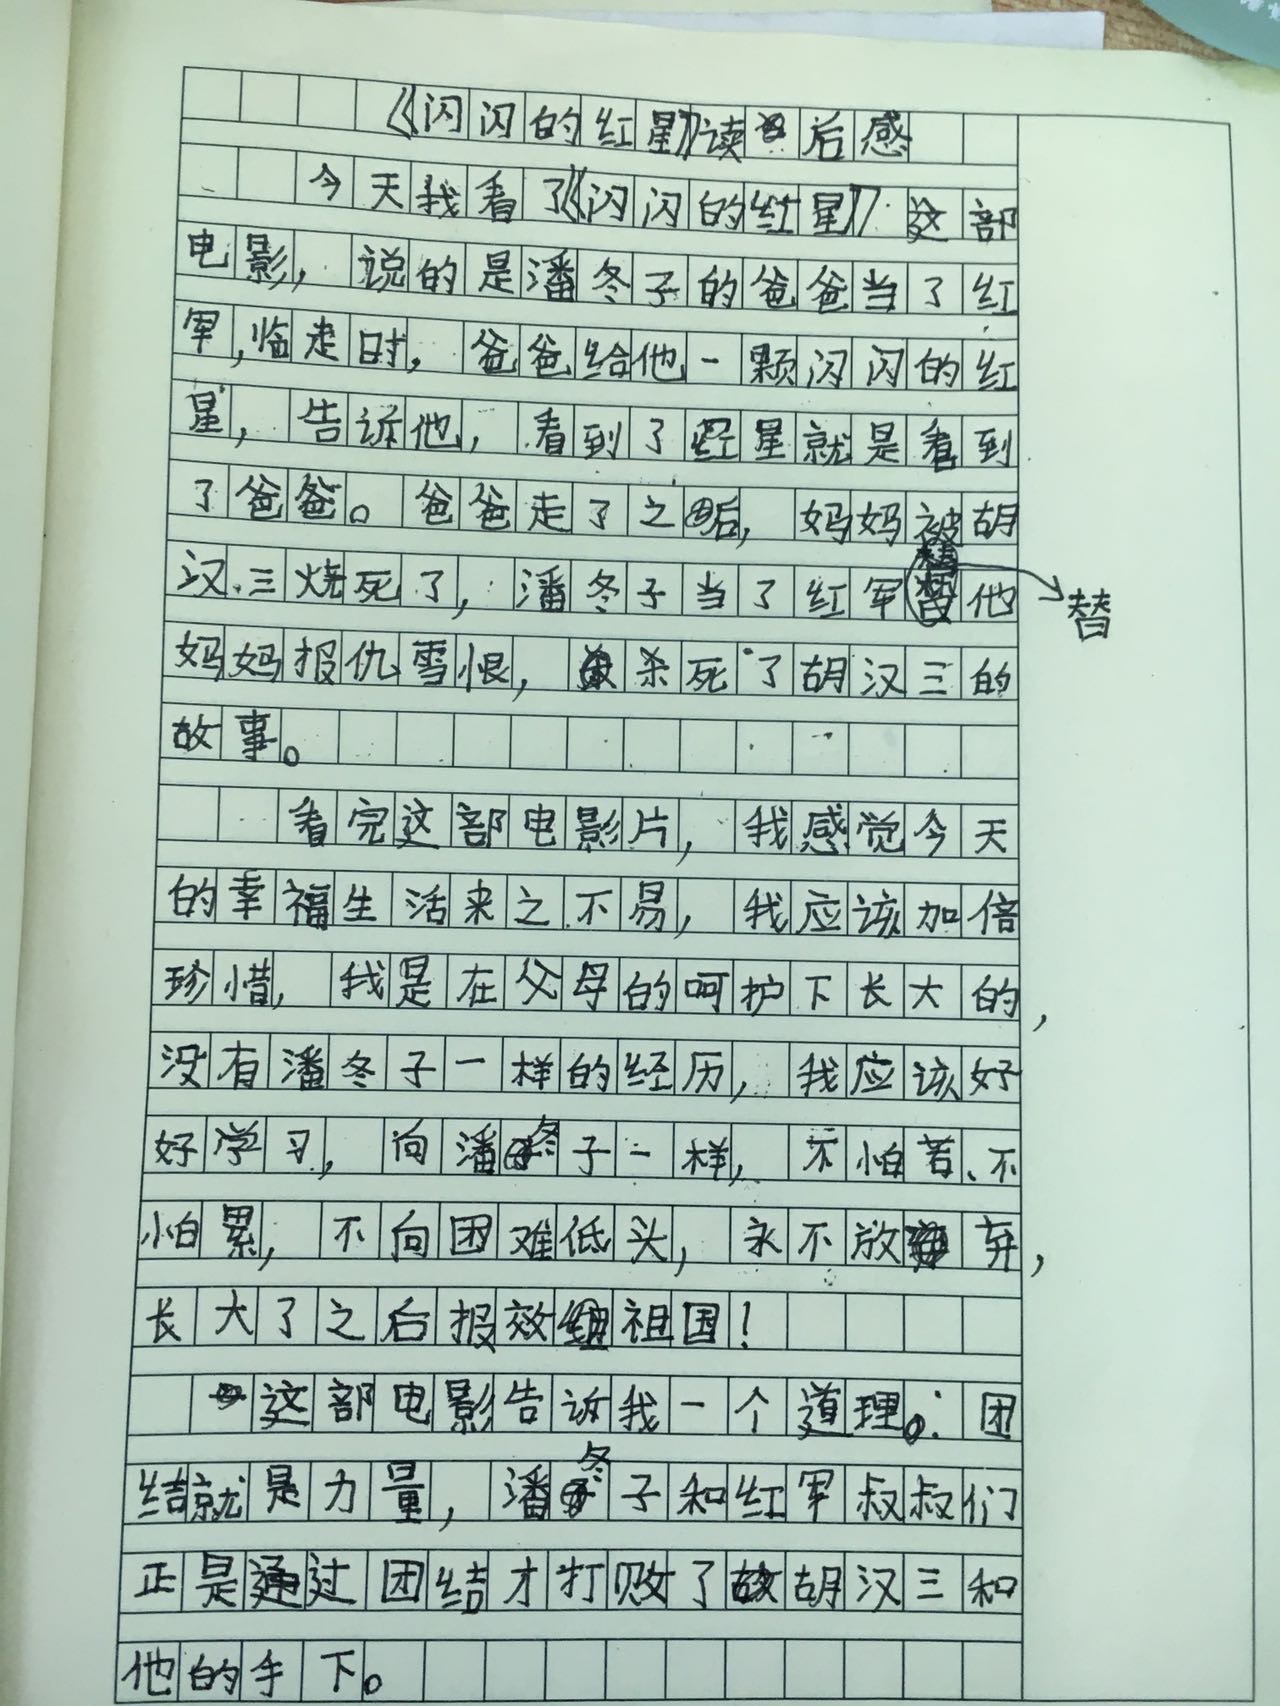 《闪闪的红星》读后感
今天我看了《闪闪的红星》这部
电影，说的是潘冬子的爸爸当了红
军，临走时，爸爸给他一颗闪闪的红
星，告诉他，看到了红星就是看到
了爸爸。爸爸走了之后，妈妈被胡
汉三烧死了，潘冬子当了红军替他
替
妈妈报仇雪恨，杀死了胡汉三的
故事。
看完这部电影片，我感觉今天
的幸福生活来之不易，我应该加倍
珍惜，我是在父母的呵护下长大的，
没有潘冬子一样的经历，我应该好
好学习，向潘冬子一样，不怕苦、不
怕累，不向困难低头，永不放弃，
长大了之后报效祖国！
这部电影告诉我一个道理：团
结就是力量，潘冬子和红军叔叔们
正是通过团结才打败了胡汉三和
他的手下。